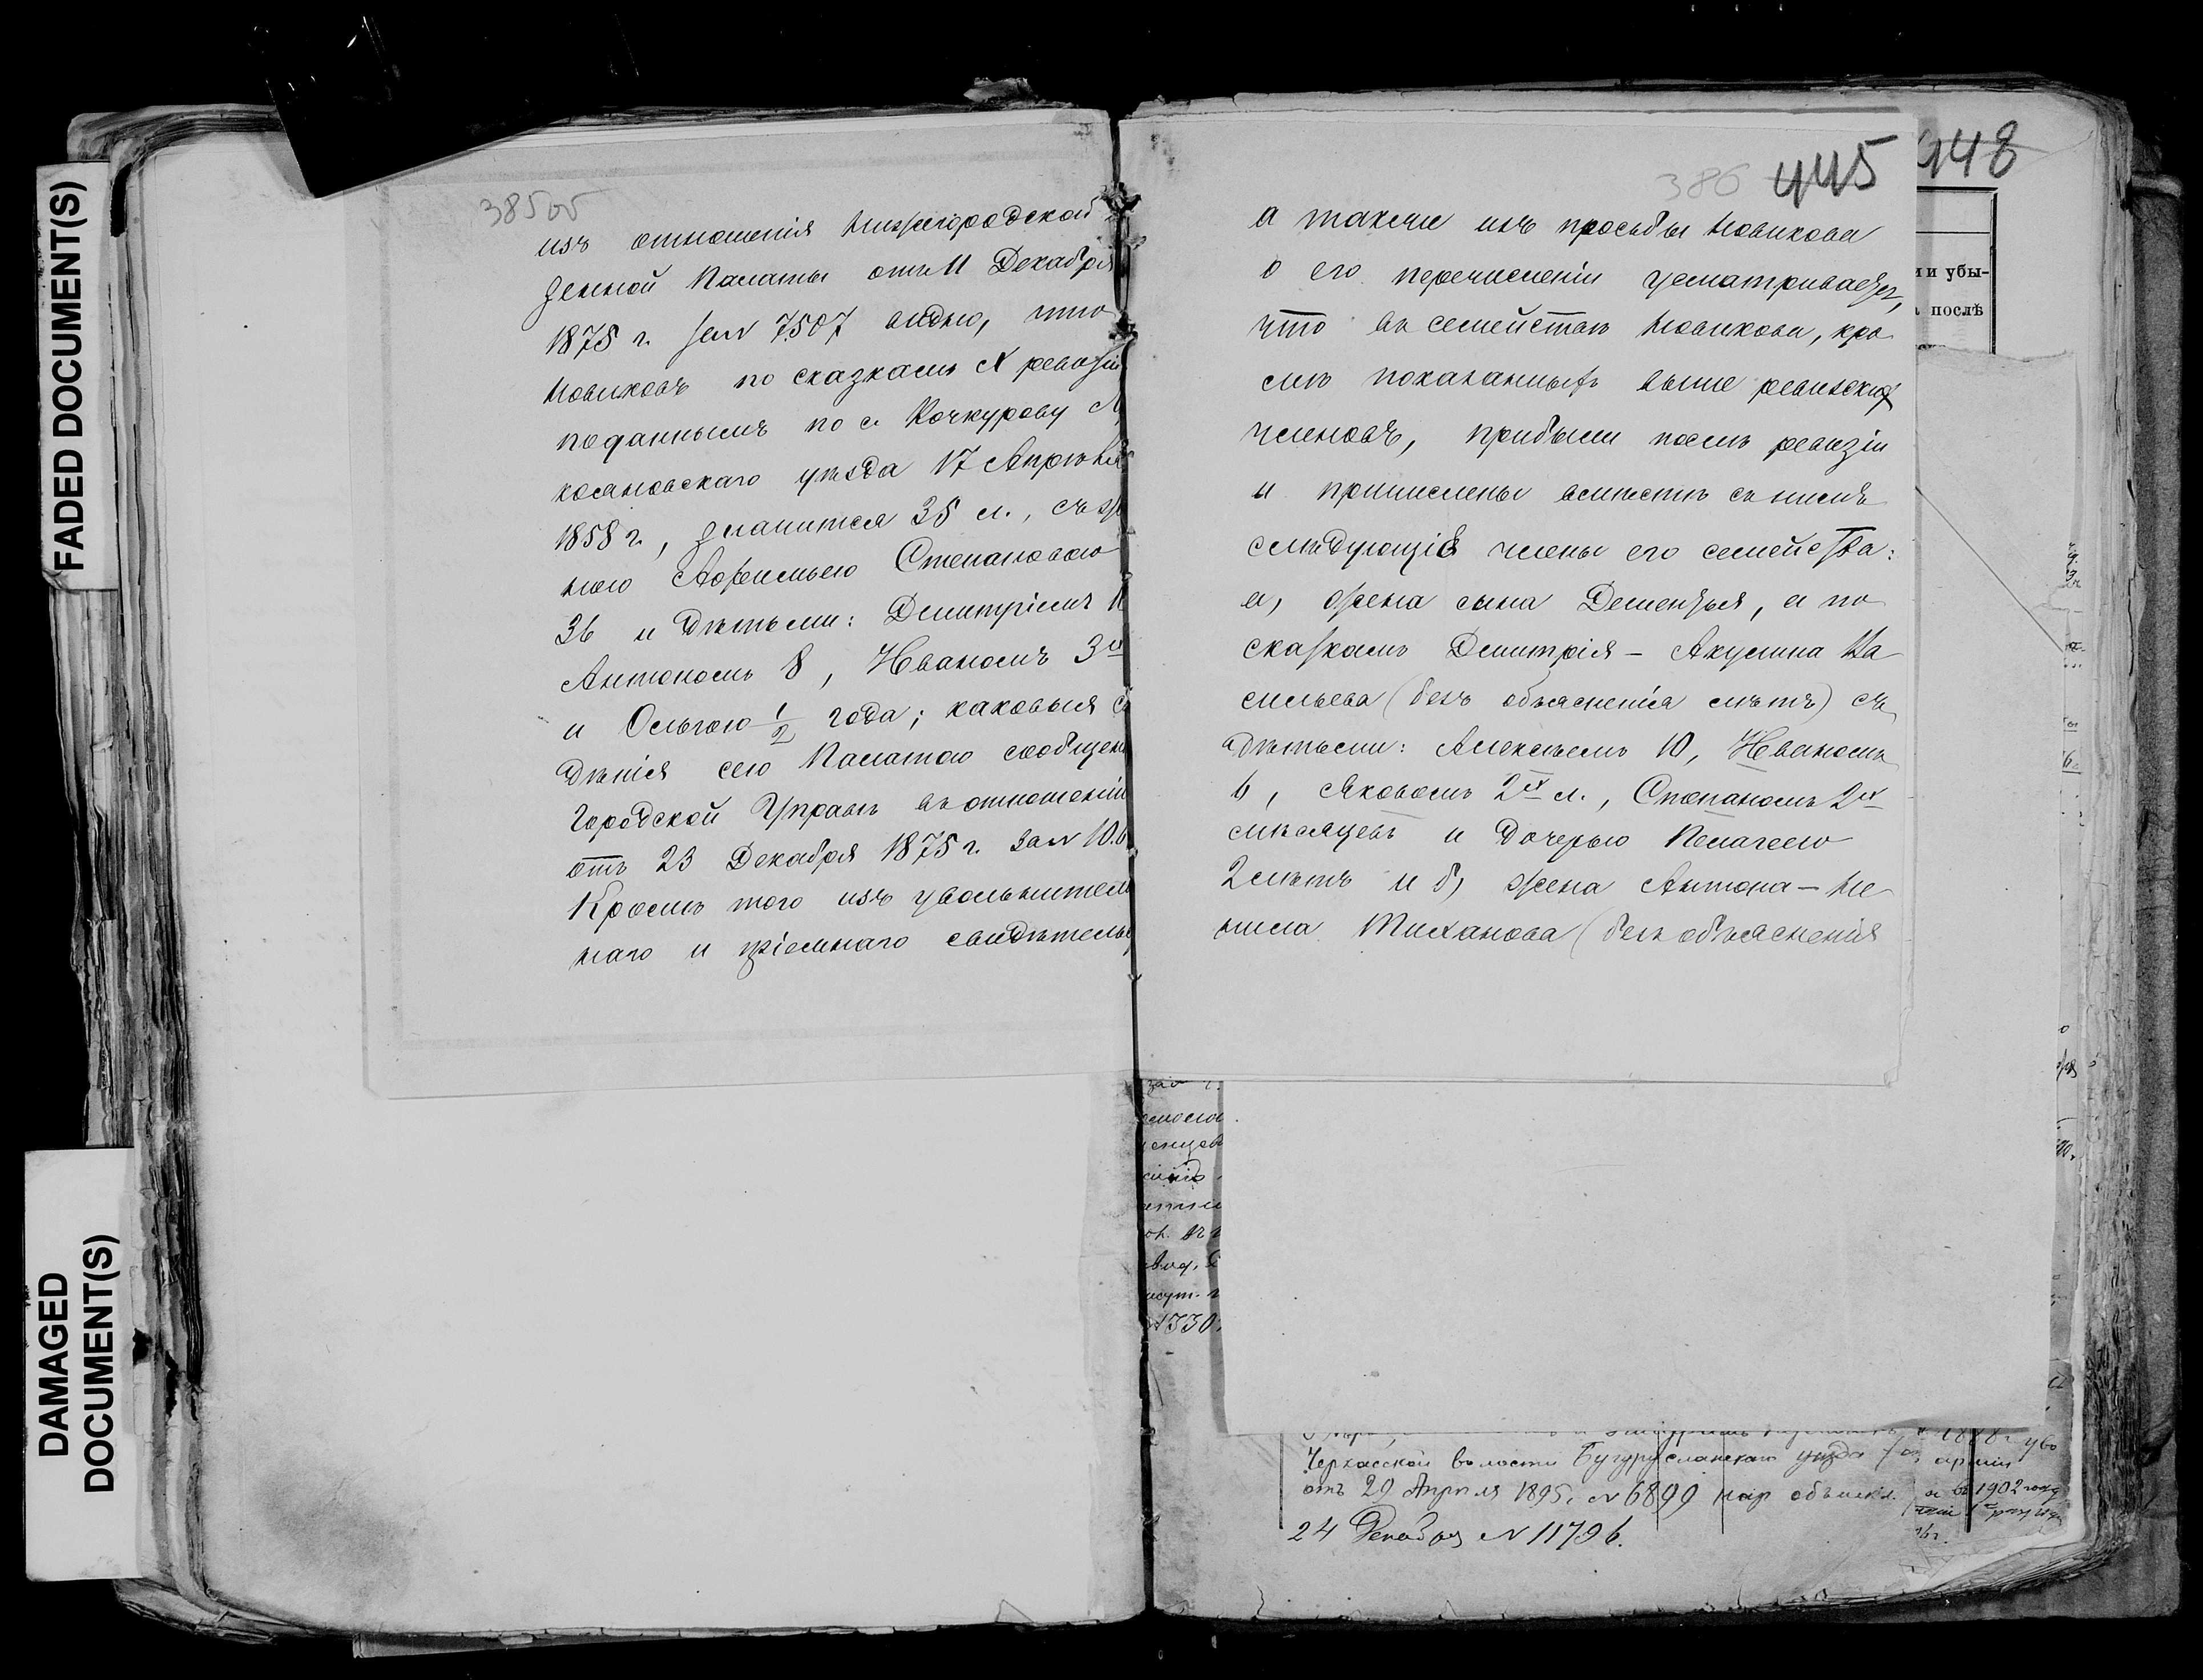 FADED DOCUMENT(S)
DAMAGED
DOCUMENT(S)
385об
изъ отношенія Нижегородской
зенной Палаты отъ 11 Декабря
1875 г. за № 7507 видно, что
Новиковъ по сказкамъ X ревизіи
поданнымъ по с. Кочкурову Лу
кояновскаго уѣзда 17 Апрѣля
1858 г., значится 35 л., съ же
ною Афимьею Степановою
36 и дѣтьми: Дмитріемъ
Антономъ 8, Иваномъ 3х
и Ольгою ½ года; каковыя св
дѣнія сею Палатою сообщены
Городской Управѣ въ отношеніи
отъ 23 Декабря 1875 г. за № 10.
Кромѣ того изъ увольнитель
наго и пріемнаго свидѣтельс
386 445
448
а также изъ просьбы Новикова
о его перечисленіи усматривается,
что въ семействѣ Новикова, кро
мѣ показанныхъ выше ревизскихъ
членовъ, прибыли послѣ ревизіи
и причислены вмѣстѣ съ нимъ
слѣдующіе члены его семейства:
а, жена сына Дементья, а по
сказкамъ Дмитрія – Акулина Ва
сильева (безъ объясненія лѣтъ) съ
дѣтьми: Алексѣемъ 10, Иваномъ
6, Яковомъ 2х л., Степаномъ 2х
мѣсяцевъ и дочерью Пелагеею
2 лѣтъ и б, жена Антона – Не
нила Тиханова (безъ объясненія
и убы-
послѣ
1330.
Черкасской волости Бугурусланскаго уѣзда
отъ 29 Апрѣля 1895. № 6899
а въ 1902 году
24 Декабря № 11796.